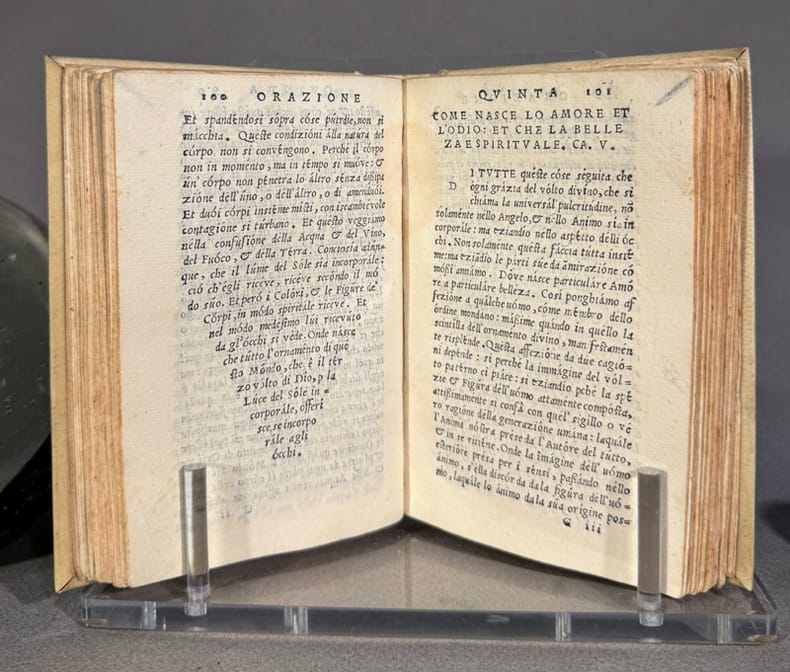 100 ORAZIONE
Et spandendosi sópra cóse pútride, non si
mácchia. Queste condizióni álla natúra del
córpo non si convengono. Perché il córpo
non in momento, ma in tempo si muóve: &
un' córpo non pénetra lo áltro sénza dissipa
zióne dell'úno, o déll'áltro, o di amenduoi.
Et duói córpi insiéme místi, con iscambiévole
contagione si túrbano. Et quésto veggiámo
nélla confusióne délla Acqua & del Vino,
del Fuóco, & della Térra. Conciosia adun-
que, che il lúme del Sóle sia incorporále:
ció ch'égli riceve, ricéve secóndo il mó
do súo. Et peró i Colóri, & le Figúre de'
Córpi, in módo spiritále riceve. Et
nel módo medésimo lúi ricevúto
da gl'ócchi si véde. Onde násce
che tútto l'ornaménto di qué
sto Móndo, che è il tér
zo vólto di Dio, p la
Lúce del Sóle in-
corporále, offeri
sce, se incorpo
rále agli
ócchi.
QVINTA 101
COME NASCE LO AMORE ET
L'ODIO: ET CHE LA BELLE
ZA E SPIRITVALE. CA. V.
D I TVTTE quéste cóse séguita che
ogni grázia del vólto divíno, che si
chiáma la universál pulcritúdine, nõ
solaménte néllo Angelo, & néllo Animo sia in
corporále: ma eziandío nello aspétto délli óc
chi. Non solaménte questa fáccia tútta insié
me: ma eziandío le párti súe da amirazióne có
móssi amámo. Dóve násce particuláre Amó
re a particuláre bellézza. Cosí ponghiámo af
fezióne a quálche uómo, cóme mémbro déllo
órdine mondáno: mássime quándo in quéllo la
scintílla dell'ornaménto divíno, manifestamén
te risplénde. Quésta affezióne da due cagió=
ni depénde: sí perché la immágine del vól=
to patérno ci piáce: sí eziandío pché la spé
zie & Figúra dell'uómo attaménte compósta,
attissimaménte si confá con quel' sigíllo o vé
ro ragióne délla generazióne umána: laquále
l'Anima nóstra prése da l'Autóre del tútto,
& in se ritiéne. Onde la imágine dell' uómo
esterióre présa per i sénsi, passándo néllo
ánimo, s'élla discórda dala figúra dell'uó=
mo, laquále lo ánimo dala súa orígine pos=
G iii